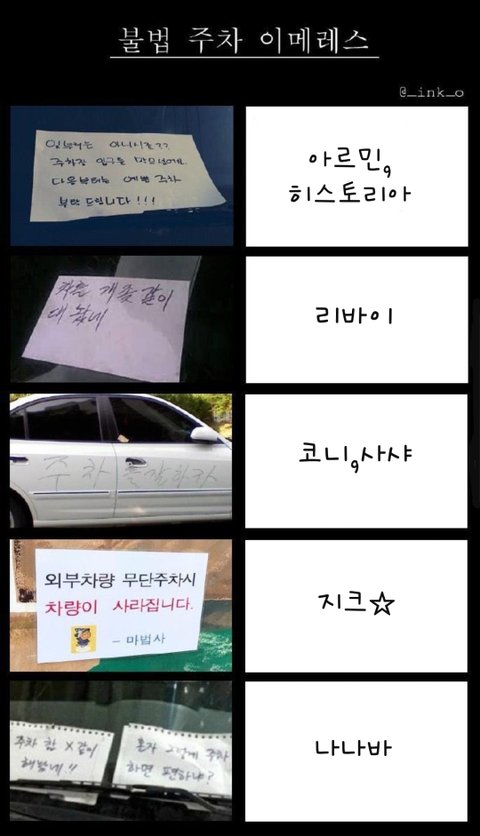 불법 주차 이메레스
@_ink_o
일부러는 아니시죠??
주차장 입구는 막으셨네요.
다음부터는 예쁜 주차
부탁 드립니다!!!
아르민,
히스토리아
차를 개좆같이
대 놨네
리바이
주차 똑바로하자
코니,사샤
외부차량 무단주차시
차량이 사라집니다.
- 마법사
지크☆
주차 참 X같이
해놨네!!
혼자 그렇게 주차
하면 편하냐?
나나바